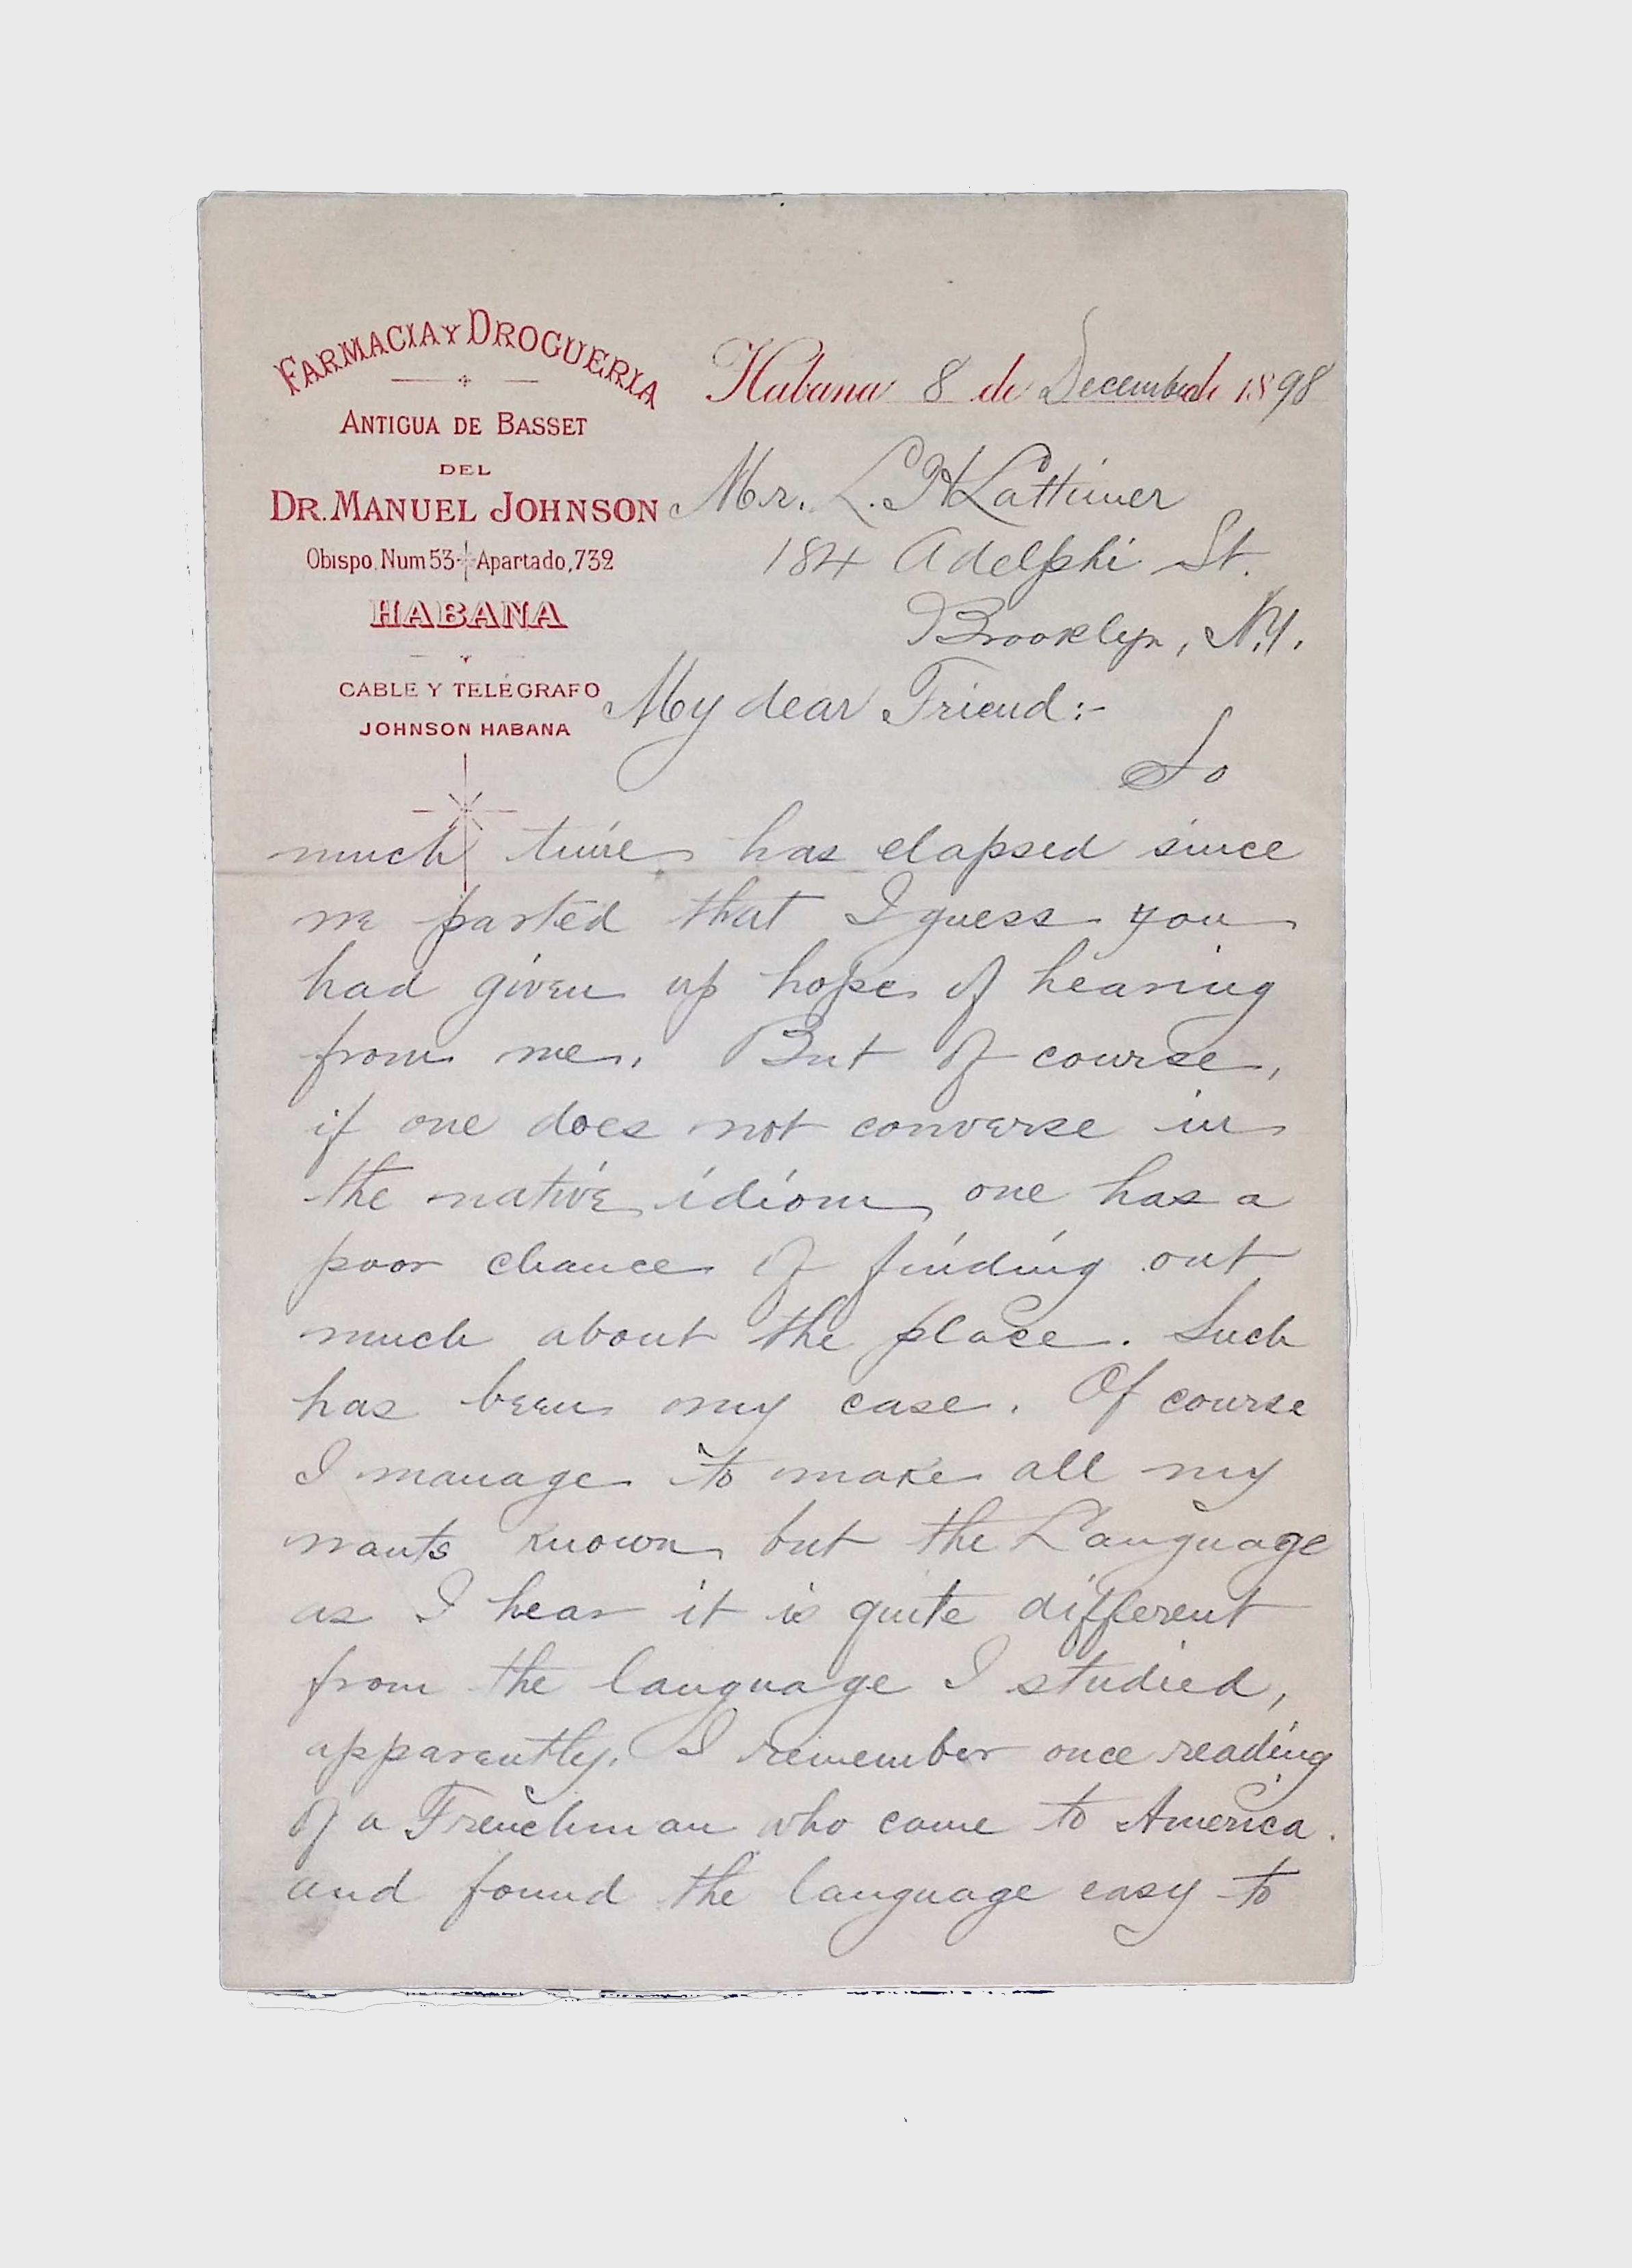 FARMACIA Y DROGUERIA
ANTIGUA DE BASSET
DEL
DR. MANUEL JOHNSON
Obispo. Num 53 Apartado, 732
HABANA
CABLE Y TELÉGRAFO
JOHNSON HABANA
Habana 8 de December de 1898
Mr. L. H Lattimer
184 Adelphi St.
Brooklyn, N.Y.
My dear Friend:-
So
much time has elapsed since
we parted that I guess you
had given up hope of hearing
from me. But of course,
if one does not converse in
the native idiom, one has a
poor chance of finding out
much about the place. Such
has been my case. Of course
I manage to make all my
wants known but the Language
as I hear it is quite different
from the language I studied,
apparently. I remember once reading
of a Frenchman who came to America.
and found the language easy to